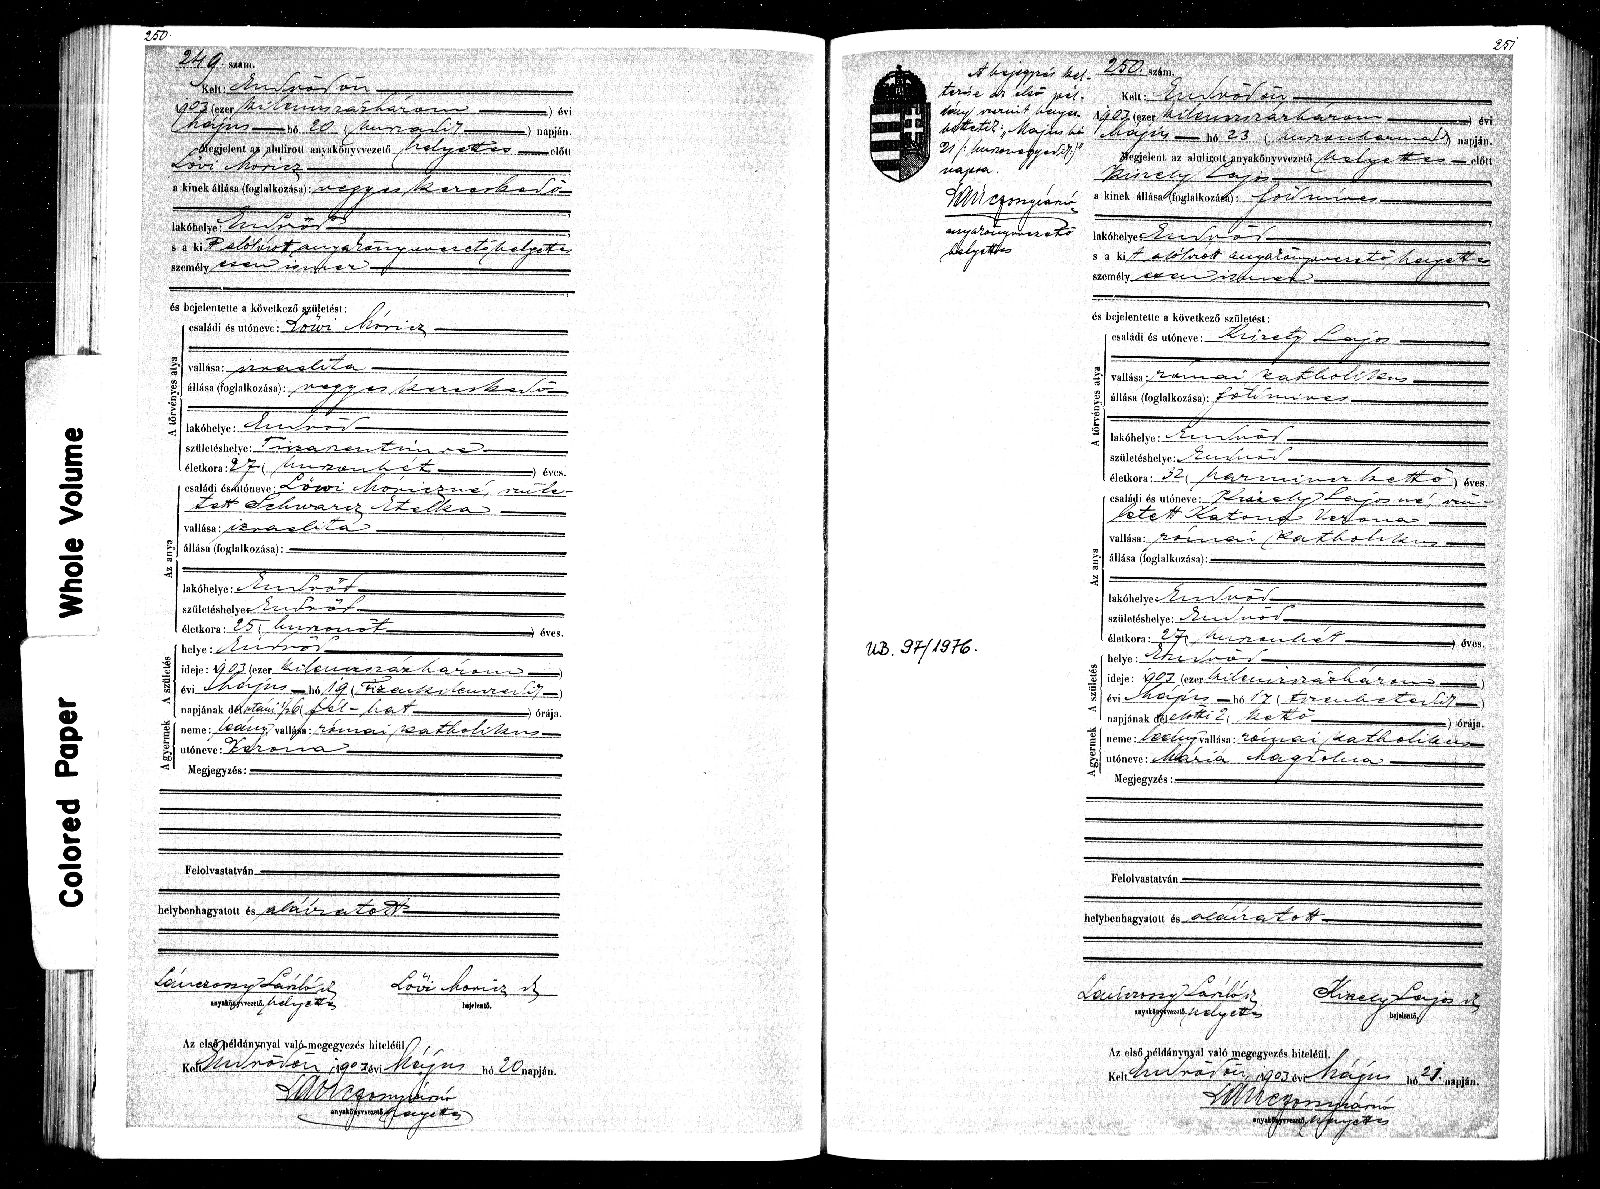 250.
249. szám.
Kelt: Endrődön
1903 (ezer kilenczszázhárom) évi
Május hó 20 (huszadik) napján.
Megjelent az alulirott anyakönyvvezető helyettes előtt
Lövi Móricz
a kinek állása (foglalkozása): vegyeskereskedő
lakóhelye: Endrőd
s a kit alólirott anyakönyvvezető helyettes
személyesen ismer
és bejelentette a következő születést:
A törvényes atya
családi és utóneve: Löwi Móricz
vallása: izraelita
állása (foglalkozása): vegyeskereskedő
lakóhelye: Endrőd
születéshelye:
életkora: 27 (huszonhét) éves.
Az anya
családi és utóneve: Löwi Móriczné, szüle-
tett Schwarcz Etelka
vallása: izraelita
állása (foglalkozása):
lakóhelye: Endrőd
születéshelye: Endrőd
életkora: 25 (huszonöt) éves.
A születés
helye: Endrőd
ideje: 1903 (ezer kilenczszázhárom)
évi Május hó 19 (tizenkilenczedik)
napjának délutáni ½6 (fél-hat) órája.
A gyermek
neme: leány, vallása: római katholikus
utóneve: Verona
Megjegyzés:
Felolvastatván
helybenhagyatott és aláiratott
Lánczony László h Lövi Moricz sk
anyakönyvvezető. helyettes bejelentő.
Az első példánynyal való megegyezés hiteléül.
Kelt Endrődön, 1903 évi Május hó 20 napján.
Lánczony László
anyakönyvvezető. helyettes
251
A bejegyzés kel-
tezése az első pél-
dány szerint
Május hó
21 (huszonegyedik)
napra.
Lánczony László
anyakönyvvezető
helyettes
UB. 97/1976.
250. szám.
Kelt: Endrődön
1903 (ezer kilenczszázhárom) évi
Május hó 23 (huszonharmadik) napján.
Megjelent az aluligott anyakönyvvezető helyettes előtt
Kiszely Lajos
a kinek állása (foglalkozása): földmives
lakóhelye: Endrőd
s a kit alólirott anyakönyvvezető helyettes
személyesen ismer
és bejelentette a következő születést:
A törvényes atya
családi és utóneve: Kiszely Lajos
vallása: római katholikus
állása (foglalkozása): földmives
lakóhelye: Endrőd
születéshelye: Endrőd
életkora: 32 (harminczkettő) éves.
Az anya
családi és utóneve: Kiszely Lajosné, szü-
letett Katona Verona
vallása: római katholikus
állása (foglalkozása):
lakóhelye: Endrőd
születéshelye: Endrőd
életkora: 27 (huszonhét) éves.
A születés
helye: Endrőd
ideje: 1903 (ezer kilenczszázhárom)
évi Május hó 17 (tizenhetedik)
napjának délelőtti 2 (kettő) órája.
A gyermek
neme: leány, vallása: római katholikus
utóneve: Mária Magdolna
Megjegyzés:
Felolvastatván
helybenhagyatott és aláiratott
Lánczony László Kiszely Lajos sk
anyakönyvvezető. helyettes bejelentő.
Az első példánynyal való megegyezés hiteléül.
Kelt Endrődön, 1903 évi Május hó 21. napján.
Lánczony László
anyakönyvvezető. helyettes
Whole Volume
Colored Paper